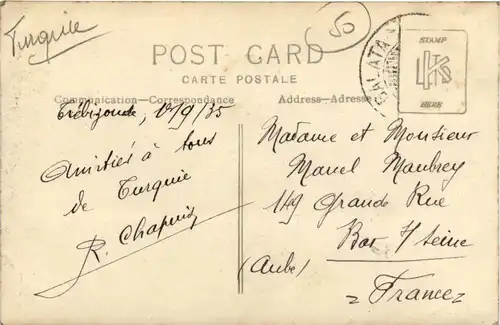 Turquie
50
POST CARD
CARTE POSTALE
Communication—Correspondance
Address—Adresse
GALATA
STAMP
HERE
Trébizonde, 10/9/35
Amitiés à tous
de Turquie
R. Chapuis
Madame et Monsieur
Manel Maubrey
149 Grande Rue
Bar s/ Seine
(Aube)
= France =